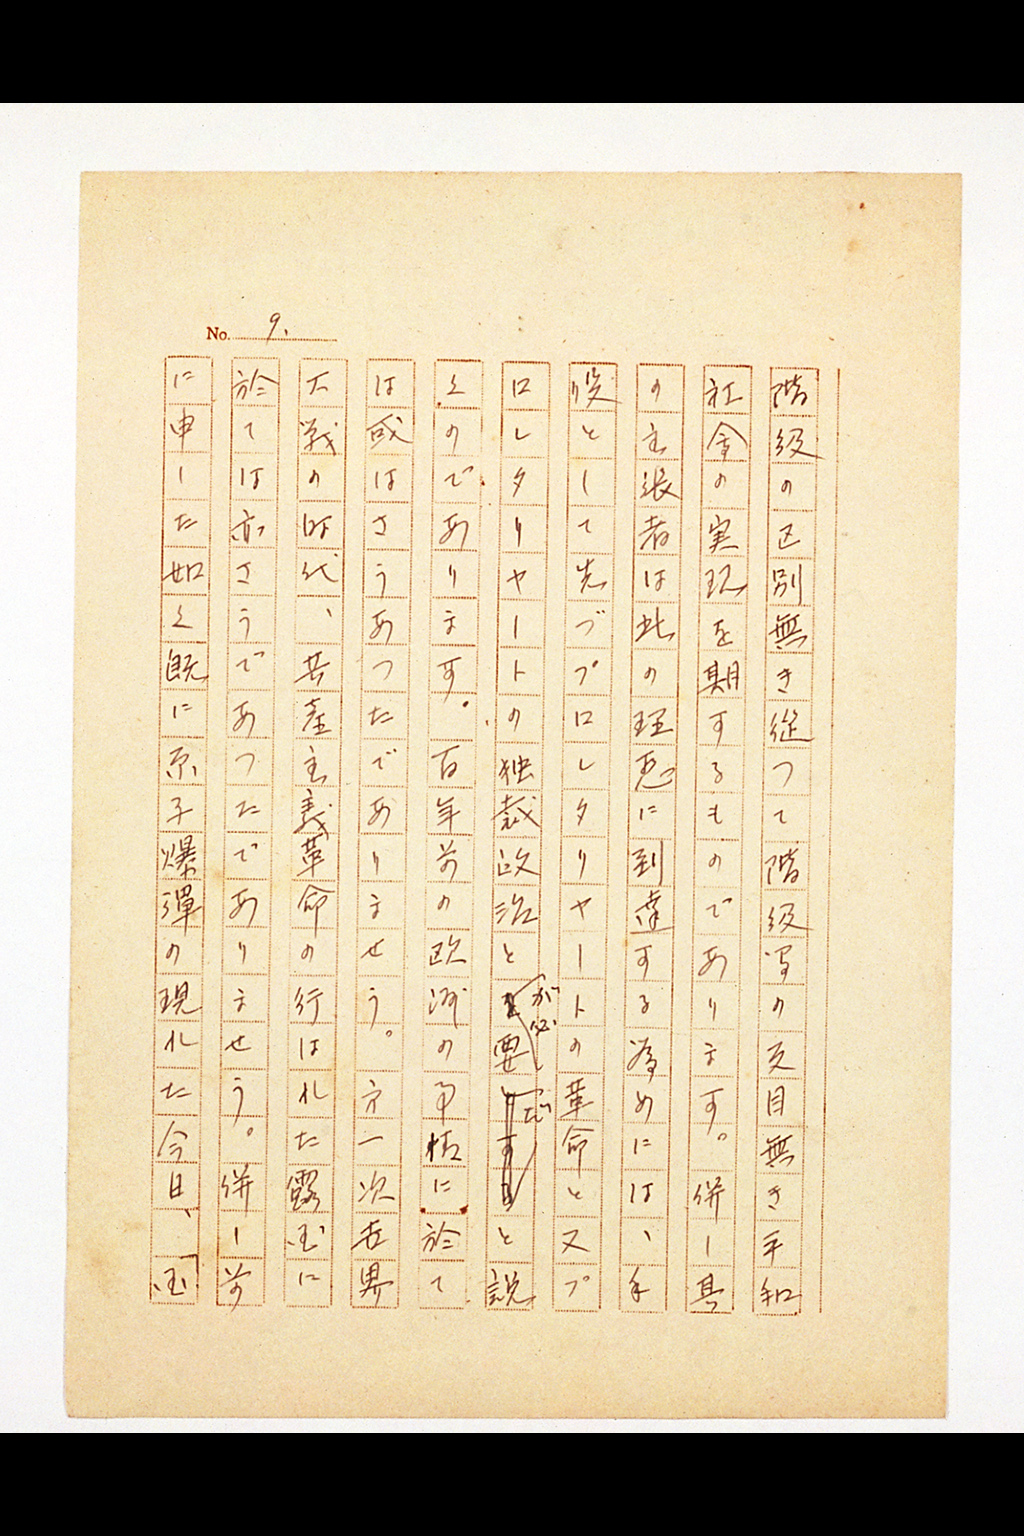 No. 9.
階級の区別無き従つて階級斗争の支目無き平和
社会の実現を期するものであります。併し其
の主張者は此の理想に到達する為めには、手
段として先づプロレタリヤートの革命と又プ
ロレタリヤートの独裁政治とが必要だと説
くのであります。百年前の欧洲の事情に於て
は或はさうあつたでありませう。第一次世界
大戦の時代、共産主義革命の行はれた露国に
於ては亦さうであつたでありませう。併し前
に申した如く既に原子爆弾の現れた今日、国